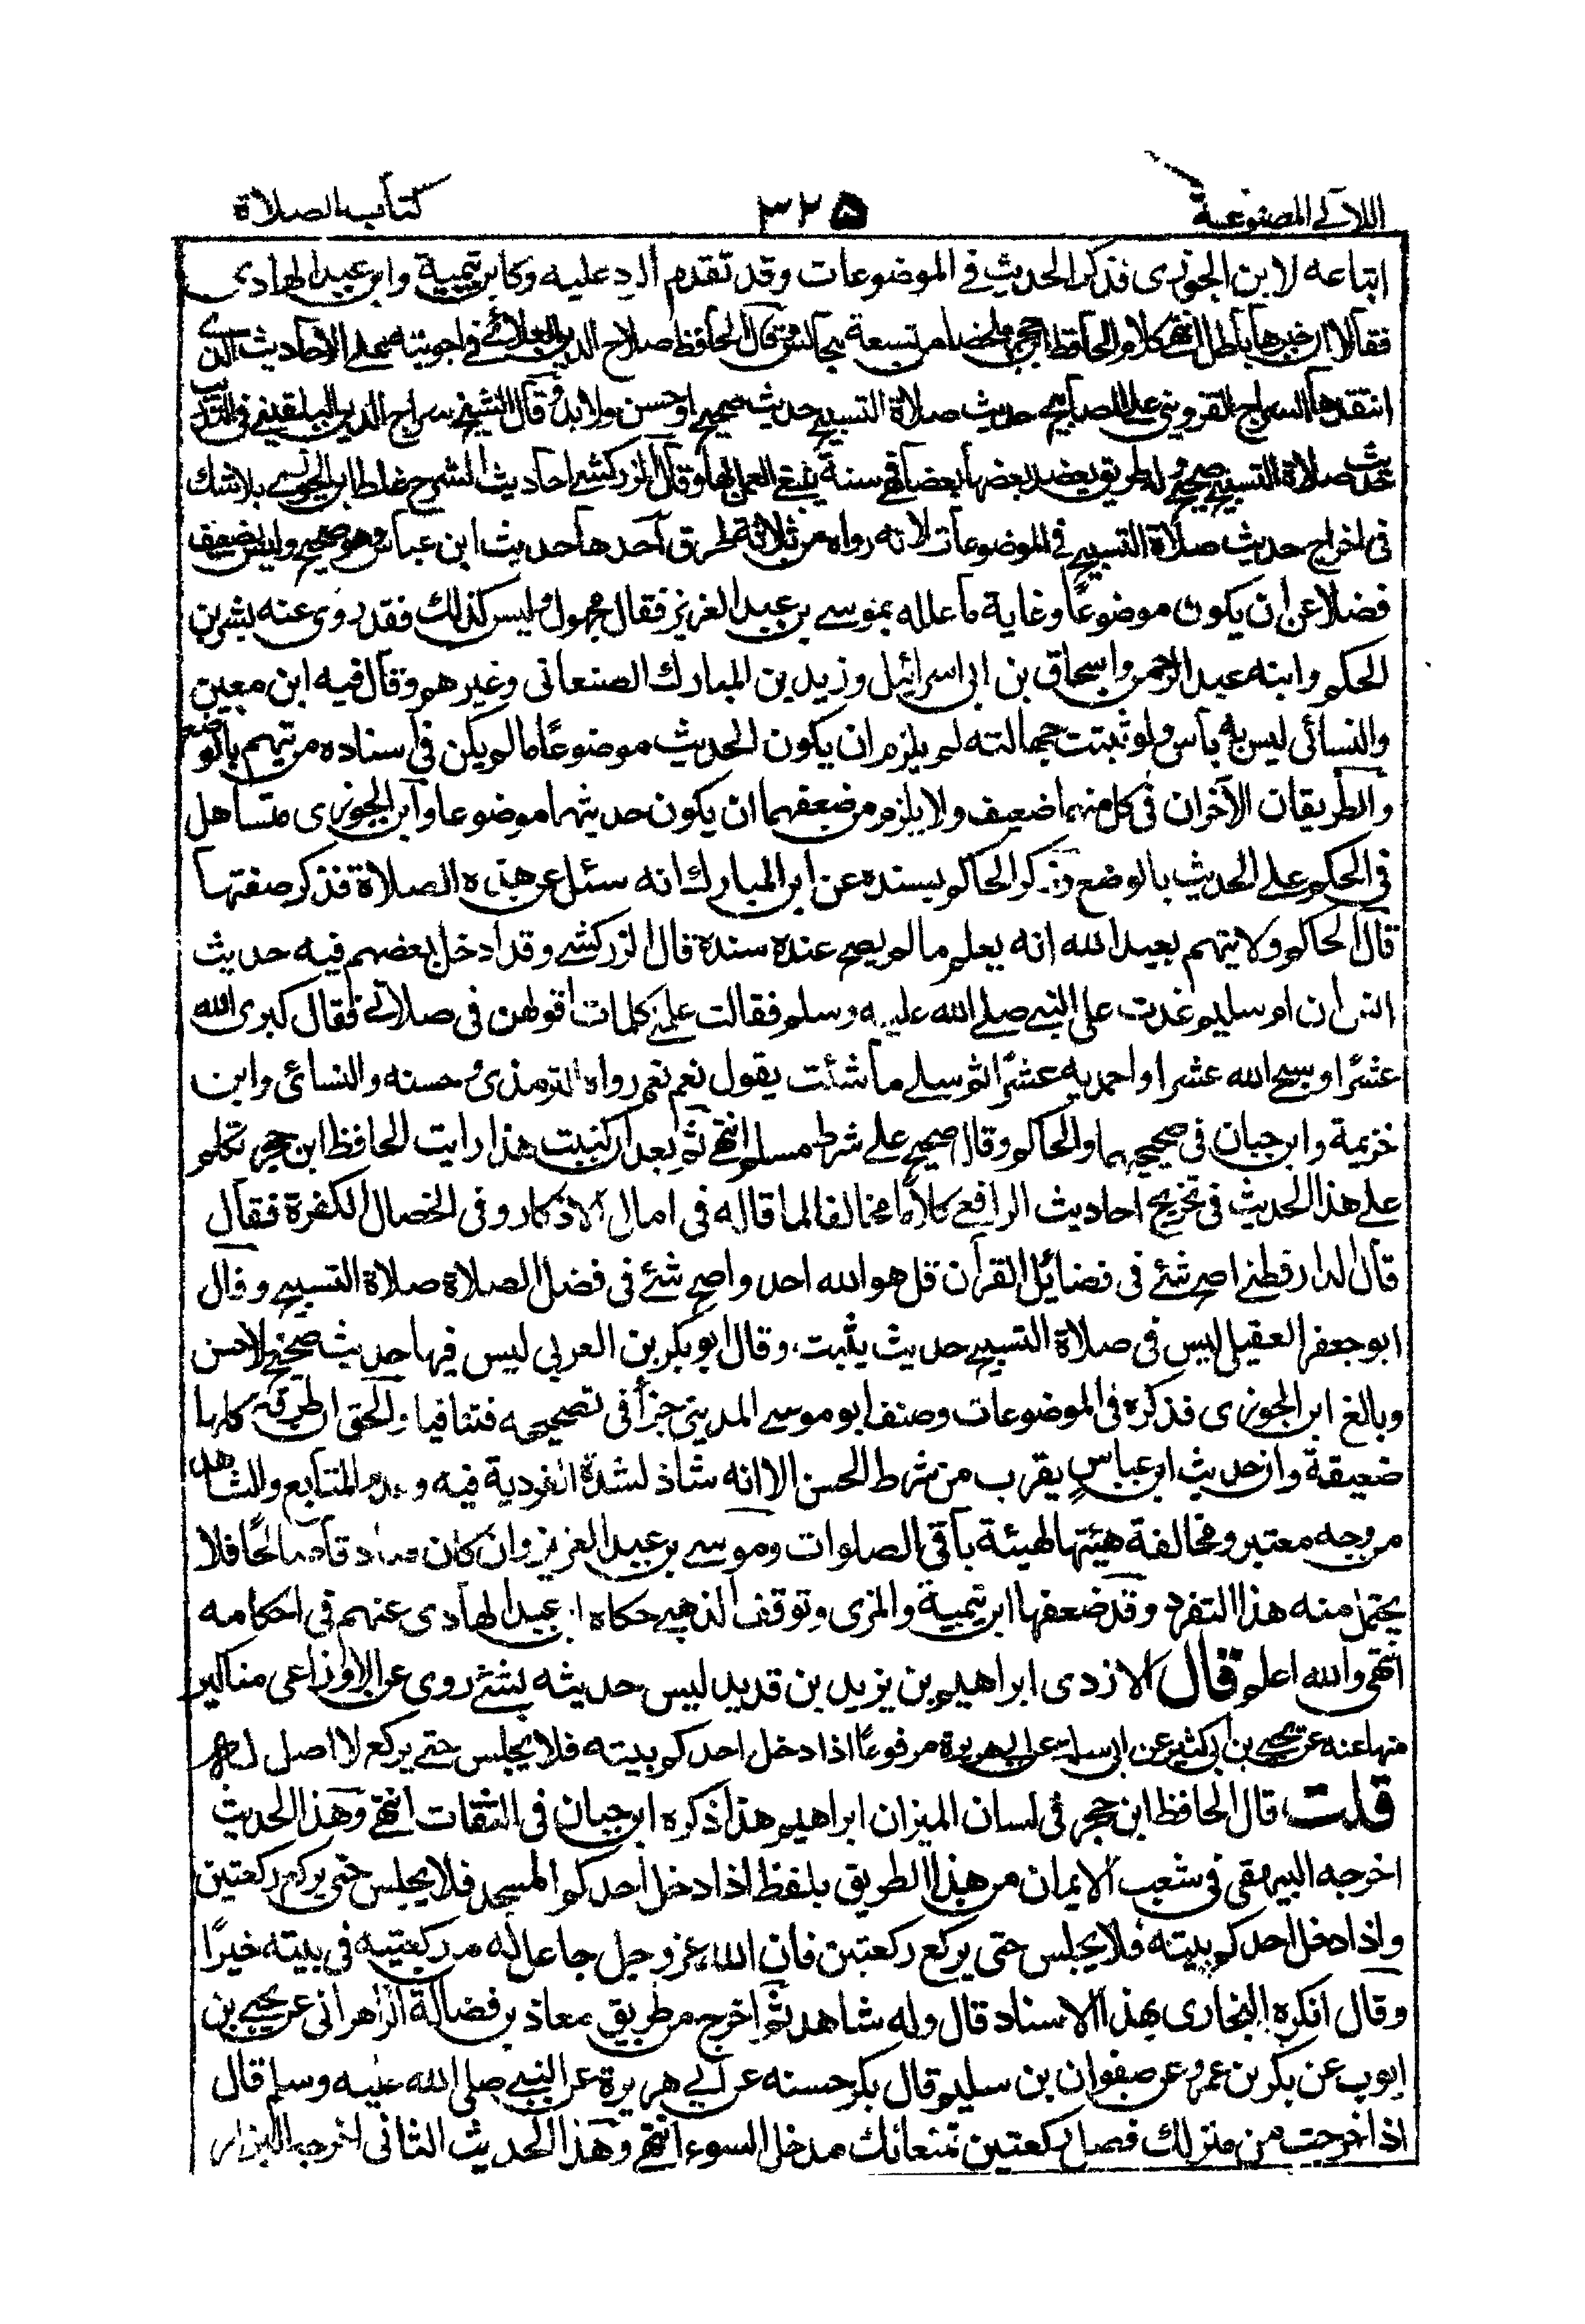 اللآلى المصنوعة ٣٢٥ كتاب الصلاة
اتباعه لابن الجوزى فذكر الحديث فى الموضوعات وقد تقدم الرد عليه وكابن تيمية وابن عبد الهادى
فقالا ان خبرها باطل انتهى كلام الحافظ ابن حجر ملخصا من تسعة مجالس وقال الحافظ صلاح الدين العلائى فى اجوبته على الأحاديث التى
انتقدها السراج القزوينى على المصابيح حديث صلاة التسبيح حديث صحيح او حسن ولابد وقال الشيخ سراج الدين البلقينى فى التدريب
حديث صلاة التسبيح صحيح وله طرق يعضد بعضها بعضا فهى سنة ينبغى العمل بها وقال الزركشى احاديث الشرح غلط ابن الجوزى بلا شك
فى اخراج حديث صلاة التسبيح فى الموضوعات لانه رواه من ثلاثة طرق احدها حديث ابن عباس وهو صحيح وليس بضعيف
فضلا عن ان يكون موضوعًا وغاية ما علله بموسى بن عبد العزيز فقال مجهول وليس كذلك فقد روى عنه بشر بن
الحكم وابنه عبد الرحمن واسحاق بن ابى اسرائيل وزيد بن المبارك الصنعانى وغيرهم وقال فيه ابن معين
والنسائى ليس به بأس ولو ثبتت جهالته لم يلزم ان يكون الحديث موضوعًا مالم يكن فى اسناده من يتهم بالوضع
والطريقان الآخران فى كل منهما ضعيف ولا يلزم من ضعفهما ان يكون حديثهما موضوعا وابن الجوزى متساهل
فى الحكم على الحديث بالوضع وذكر الحاكم بسنده عن ابن المبارك انه سئل عن هذه الصلاة فذكر صفتها
قال الحاكم ولا يتهم بعبد الله انه يعلم مالم يصح عنده سنده قال الزركشى وقد ادخل بعضهم فيه حديث
انس ان ام سليم غدت على النبى صلى الله عليه وسلم فقالت علمنى كلمات اقولهن فى صلاتى فقال كبرى الله
عشرًا وسبحى الله عشرا واحمديه عشرًا ثم سلى ما شئت يقول نعم نعم رواه الترمذى وحسنه والنسائى وابن
خزيمة وابن حبان فى صحيحيهما والحاكم وقال صحيح على شرط مسلم انتهى ثم بعد ان كتبت هذا رايت الحافظ ابن حجر تكلم
على هذا الحديث فى تخريج احاديث الرافعى كلامًا مخالفا لما قاله فى امالى الاذكار وفى الخصال المكفرة فقال
قال الدارقطنى اصح شئ فى فضائل القرآن قل هو الله احد واصح شئ فى فضل الصلاة صلاة التسبيح وقال
ابو جعفر العقيلى ليس فى صلاة التسبيح حديث يثبت وقال ابو بكر بن العربى ليس فيها حديث صحيح ولا حسن
وبالغ ابن الجوزى فذكره فى الموضوعات وصنف ابو موسى المدينى جزأ فى تصحيحه فتنافيا والحق ان طرقه كلها
ضعيفة وان حديث ابن عباس يقرب من شرط الحسن الا انه شاذ لشدة الفردية فيه وعدم المتابع والشاهد
من وجه معتبر ومخالفة هيئتها لهيئة باقى الصلوات وموسى بن عبد العزيز وان كان صادقا صالحًا فلا
يحتمل منه هذا التفرد وقد ضعفها ابن تيمية والمزى وتوقف الذهبى حكاه ابن عبد الهادى عنهم فى احكامه
انتهى والله اعلم قال الازدى ابراهيم بن يزيد بن قديد ليس حديثه بشئ روى عن الاوزاعى مناكير
منها عنه عن يحيى بن ابى كثير عن ابى سلمة عن ابى هريرة مرفوعًا اذا دخل احدكم بيته فلا يجلس حتى يركع لا اصل له
قلت قال الحافظ ابن حجر فى لسان الميزان ابراهيم هذا ذكره ابن حبان فى الثقات انتهى وهذا الحديث
اخرجه البيهقى فى شعب الايمان من هذا الطريق بلفظ اذا دخل احدكم المسجد فلا يجلس حتى يركع ركعتين
واذا دخل احدكم بيته فلا يجلس حتى يركع ركعتين فان الله عز وجل جاعل له من ركعتيه فى بيته خيرًا
وقال انكره البخارى بهذا الاسناد قال وله شاهد ثم اخرج من طريق معاذ بن فضالة الزهرانى عن يحيى بن
ايوب عن بكر بن عمرو عن صفوان بن سليم قال بكر حسبته عن ابى هريرة عن النبى صلى الله عليه وسلم قال
اذا خرجت من منزلك فصل ركعتين تمنعانك مدخل السوء انتهى وهذا الحديث الثانى اخرجه البزار